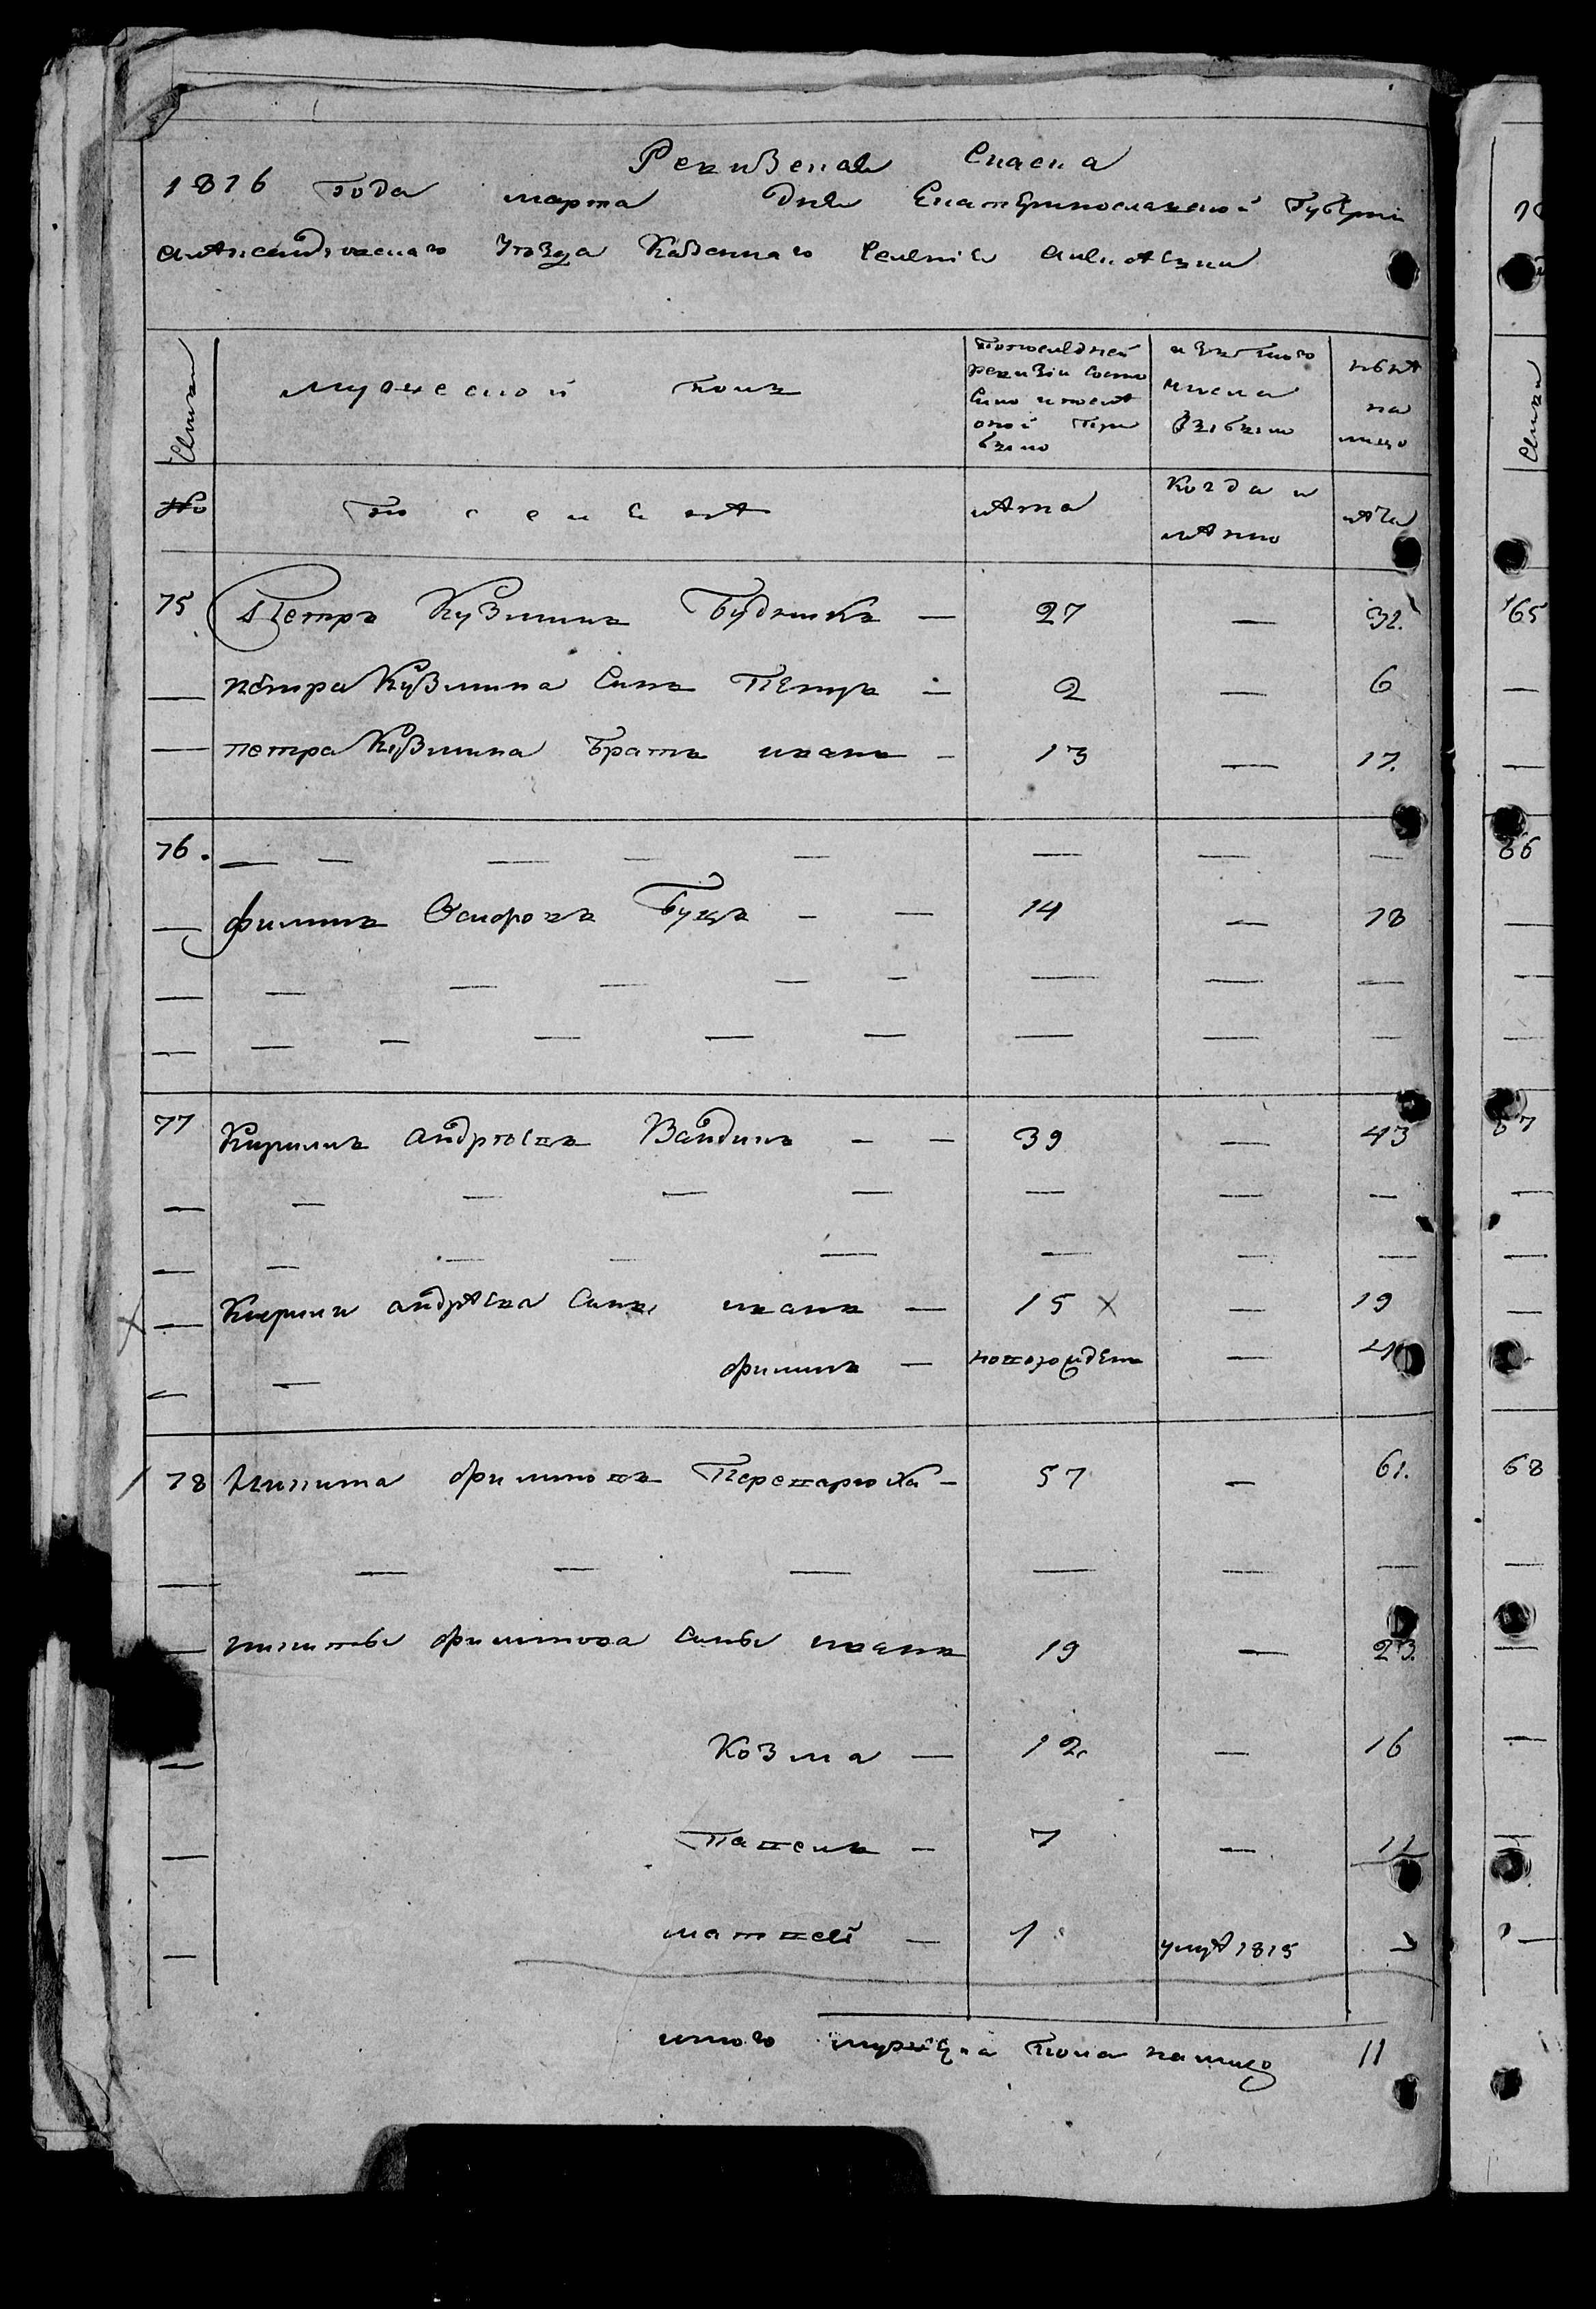 Ревизская Сказка
1816 года марта дня Екатеринославской Губерни
александровскаго Уезда Казеннаго Селения
Семьи
мужеской полъ
По последней ревизіи состояло и после оной прибыло
изъ того числа выбыло
ныне на лицо
№
Поселяне
лета
Когда и
лета
75 Петръ Кузминъ — 27 — 32.
петра Кузмина Сынъ Петръ — 2 — 6
петра Кузмина Братъ иванъ — 13 — 17.
76. — — — — — — — —
— филипъ Осиповъ Буцъ — — 14 — 18
77 Кирилъ андреевъ Вайдинъ — — 39 — 43
— Кирила андреева Сынъ иванъ — 15 х — 19
— — филипъ — новорожденъ —
78 Никита филиповъ — 57 — 61.
— никиты филипова Сыны иванъ 19 — 23.
— Козма — 12 — 16
— Павелъ — 7 — 11
— матвей — 1 умре 1815 —
итого мужеска пола налицо 11
65
66
67
68